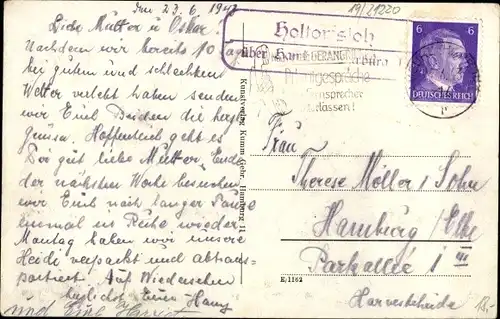 Den 23.6.1942
19/21220
Liebe Mutter u Oskar!
Nachdem wir bereits 10 Tage
bei gutem und schlechtem
Wetter verlebt haben senden
wir Euch Beiden die herzl.
Grüsse. Hoffentlich geht es
Dir gut liebe Mutter, Ende
der nächsten Woche besuchen
wir Euch nach langer Pause
einmal in Ruhe wieder
Montag haben wir unsere
Heidi verpackt und abtrans-
portiert. Auf Wiedersehen
herzlichst Euer Hans
und Eure Harriet
Kunstverlag Kumm Gebr., Hamburg 11
Hollorisloh
über Hamburg
FERNGESPRÄCHE
6 6
DEUTSCHES REICH
Frau
Therese Möller / Sohn
Hamburg / Elbe
Parkallee 1 III
Harvestehude
E/1162